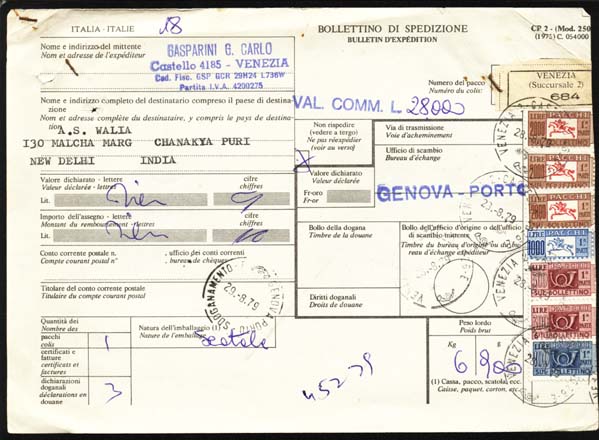 ITALIA - ITALIE
18
BOLLETTINO DI SPEDIZIONE
BULLETIN D'EXPÉDITION
CP 2 - (Mod. 250
(1975) C. 054000
Nome e indirizzo del mittente
Nom et adresse de l'expéditeur
GASPARINI G. CARLO
Castello 4185 - VENEZIA
Cod. Fisc. GSP GCR 29M24 L736W
Partita I.V.A. 4200275
Numero del pacco
Numéro du colis:
VENEZIA
(Succursale 2)
684
VAL. COMM. L. 28000
Nome e indirizzo completo del destinatario compreso il paese di destinazione
Nom et adresse complète du destinataire, y compris le pays de destination
A.S. WALIA
I30 MALCHA MARG CHANAKYA PURI
NEW DELHI INDIA
Non rispedire
(vedere a tergo)
Ne pas réexpédier
(voir au verso)
X
Via di trasmissione
Voie d'acheminement
Ufficio di scambio
Bureau d'échange
GENOVA - PORTO
Valore dichiarato - lettere
Valeur déclarée - lettres
cifre
chiffres
Lit.
Valore dichiarato
Valeur déclarée
Fr-oro
Fr-or
Importo dell'assegno - lettere
Montant du remboursement - lettres
cifre
chiffres
Lit.
Bollo della dogana
Timbre de la douane
Bollo dell'ufficio d'origine o dell'ufficio
di scambio attento
Timbre du bureau d'origine ou du bureau
d'échange expéditeur
Conto corrente postale n.
Compte courant postal n°
ufficio dei conti correnti
bureau de chèques
Titolare del conto corrente postale
Titulaire du compte courant postal
SDOGANAMENTO
GENOVA PORTO
29.-8.79
Diritti doganali
Droits de douane
Quantità dei
Nombre des
pacchi
colis
1
certificati e
fatture
certificats et
factures
dichiarazioni
doganali
déclarations en
douane
3
Natura dell'imballaggio (1)
Nature de l'emballage (1)
scatola
Peso lordo
Poids brut
Kg
g
6 900
(1) Cassa, pacco, scatola, ecc.
Caisse, paquet, carton, etc.
VENEZIA
28.-8.79
PACCHI
LIRE
1000
SUL BOLLETTINO